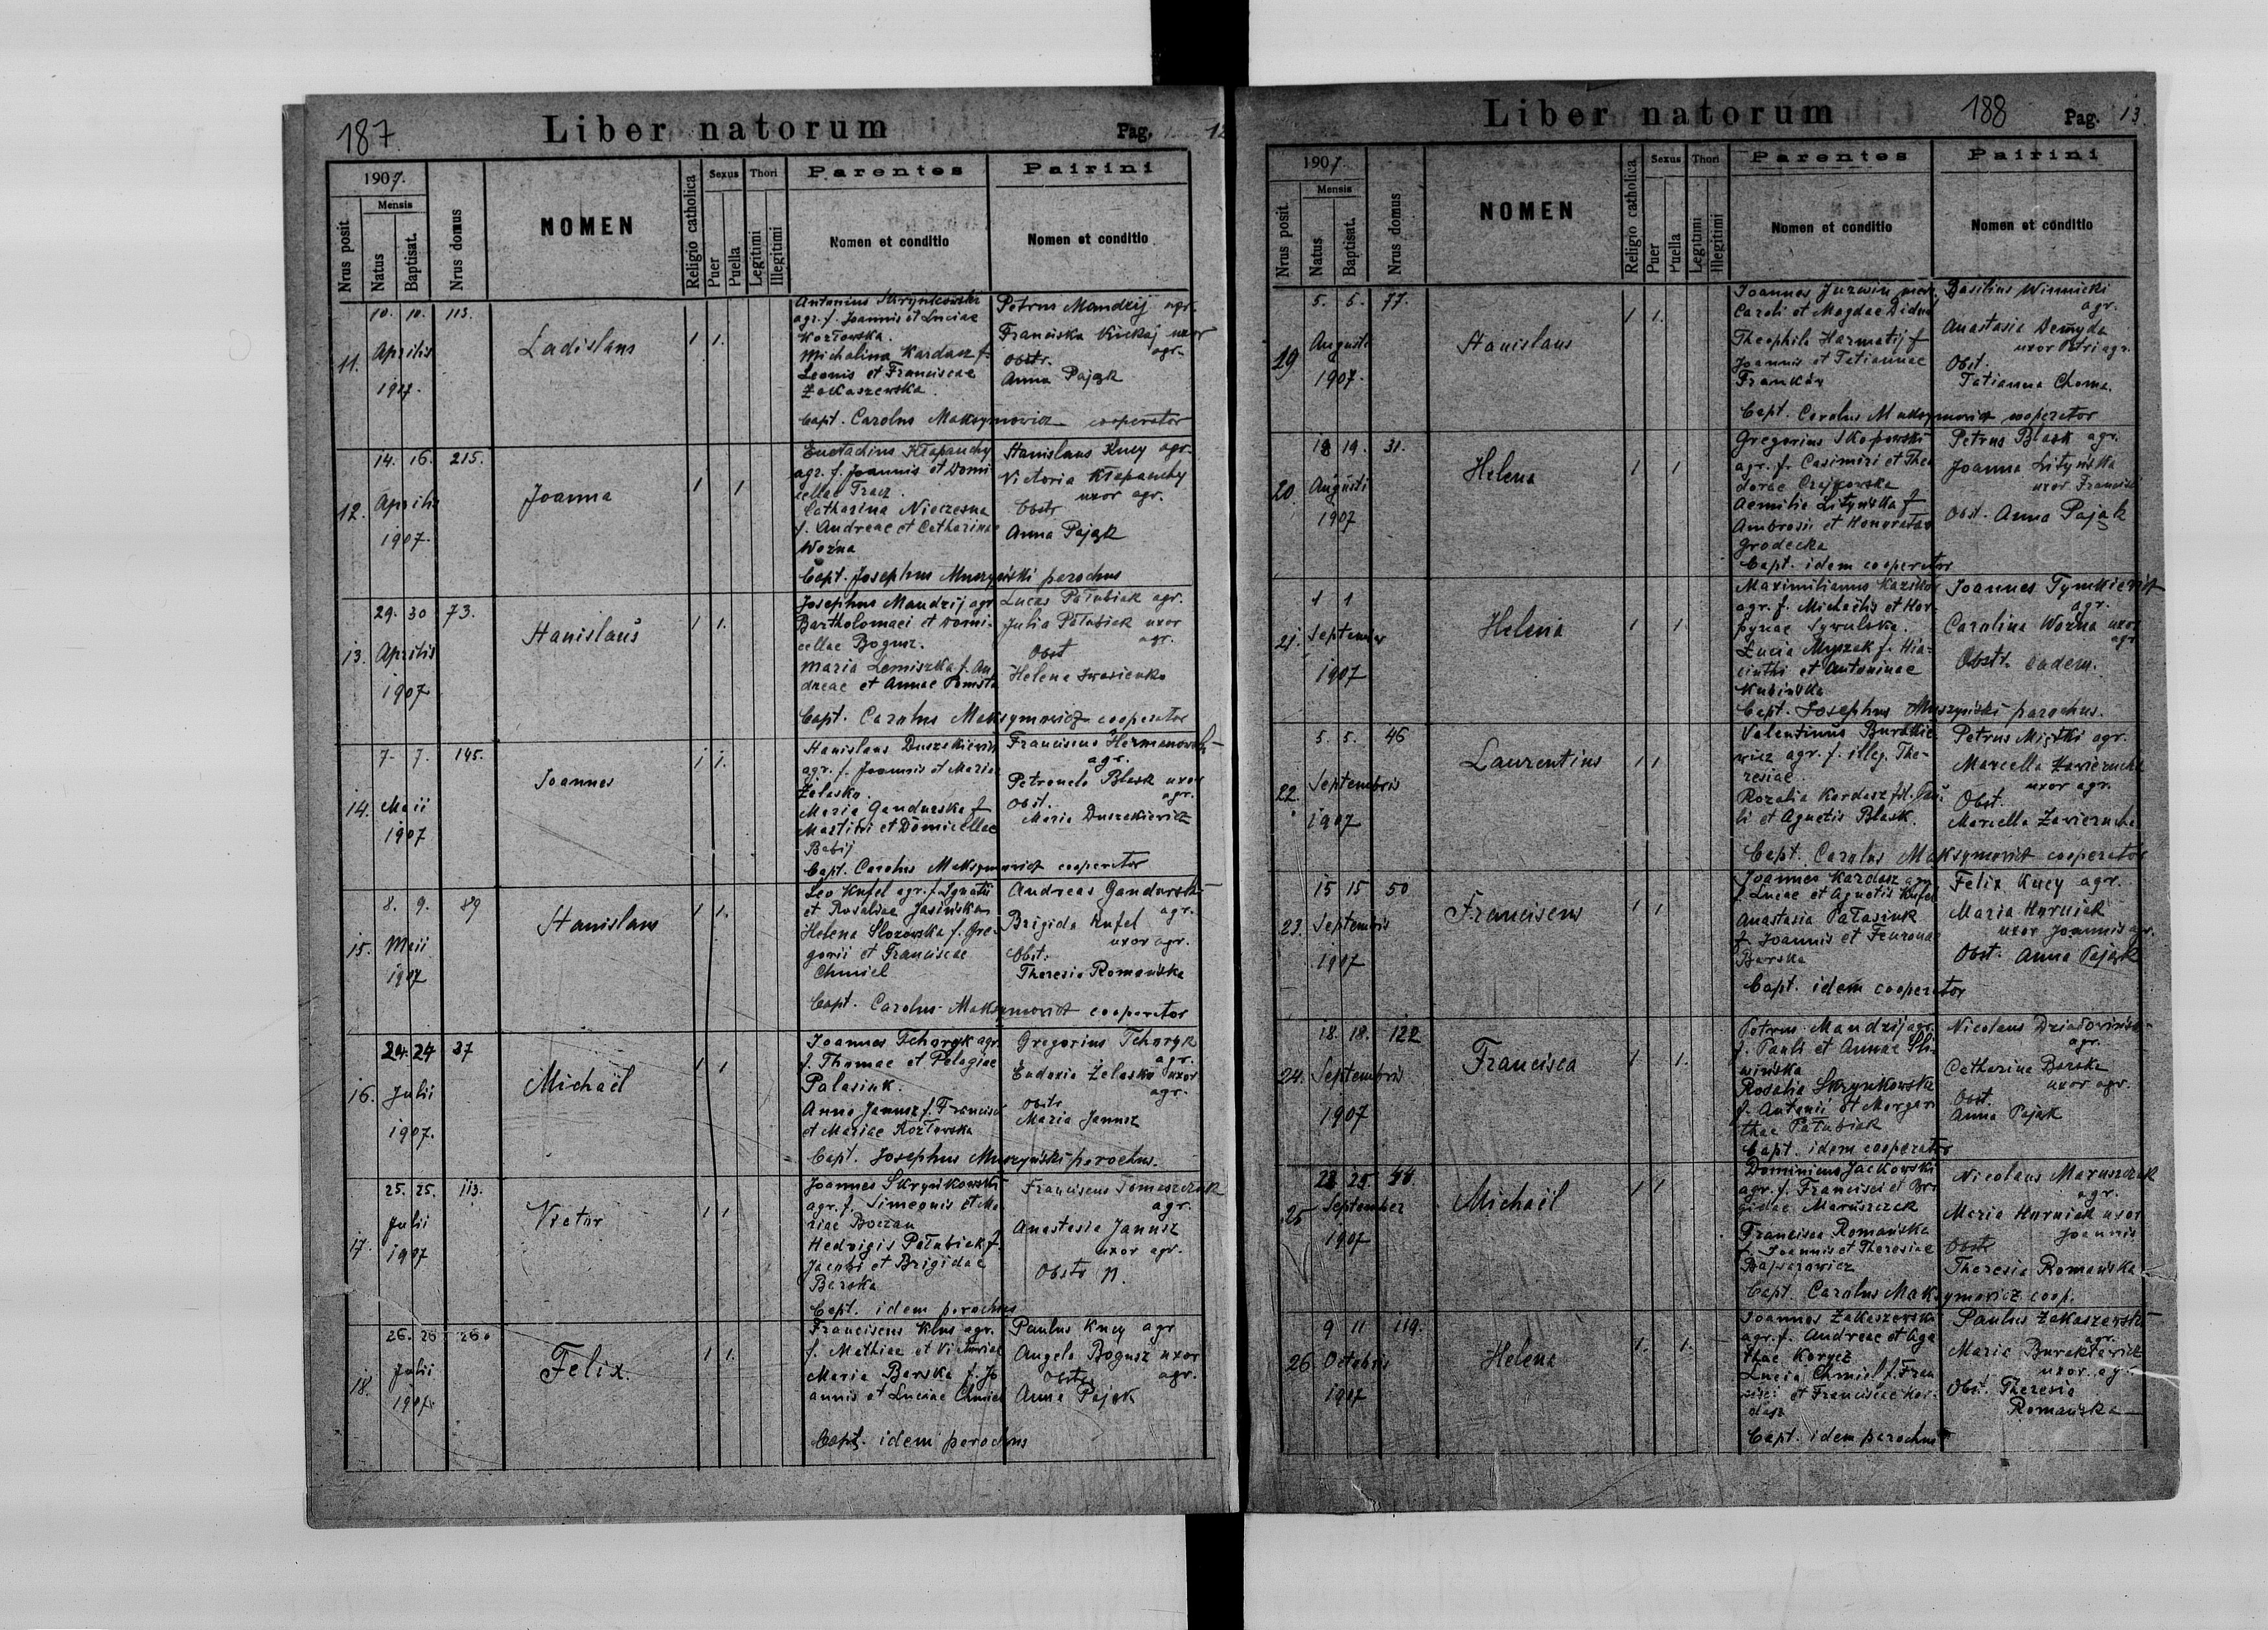 187.
Liber natorum
Pag. 12
1907.
Nrus posit.
Mensis
Natus
Baptisat.
Nrus domus
NOMEN
Religio catholica
Sexus
Puer
Puella
Thori
Legitimi
Illegitimi
Parentes
Nomen et conditio
Patrini
Nomen et conditio
11.
10. 10. 113.
Aprilis
1907.
Ladislaus
1 1.
Antonius Skrynkowski
agr. f. Joannis et Luciae
Kozłowska.
Michalina Kardasz f.
Leonis et Franciscae
Zakaszewska.
Petrus Mandzij agr.
Franciska uxor
agr.
Obstr.
Anna Pająk
Bapt. Carolus Maksymowicz cooperator
12.
14. 16. 215.
Aprilis
1907.
Joanna
1 1
Eustachius Kłapauchy
agr. f. Joannis et Domi
cellae Tracz.
Catharina Nieczesna
f. Andreae et Catharinae
Woźna
Stanislaus Kucy agr.
Victoria Kłapauchy
uxor agr.
Obstr
Anna Pająk
Bapt. Josephus Muszyński parochus
13.
29. 30 73.
Aprilis
1907
Stanislaus
1 1.
Josephus Mandzij agr
Bartholomaei et Domi-
cellae Bogusz.
Maria Lemiszka f. An
dreae et Annae
Lucas Pałubiak agr.
Julia Pałubiak uxor
agr.
Obst
Helena Iwasienko
Bapt. Carolus Maksymowicz cooperator
14.
7. 7. 145.
Maii
1907
Joannes
1 1.
Stanislaus Duszakiewicz
agr. f. Joannis et Mariae
Żelasko.
Maria Gandurska f
Martini et Domicellae
Babij
Franciscus Hermanowski
agr.
Petronela Blask uxor
agr.
Obst.
Maria Duszakiewicz
Bapt. Carolus Maksymowicz cooperator
15.
8. 9. 89
Maii
1907
Stanislaus
1 1.
Leo Kufel agr. f. Ignatii
et Rosaliae Jasińska
Helena Slozowska f. Gre-
gorii et Franciscae
Chmiel
Andreas Gandurski
agr.
Brigida Kufel
uxor agr.
Obst.
Theresia Romańska
Bapt. Carolus Maksymowicz cooperator
16.
24. 24 37
Julii
1907.
Michaël
1 1
Joannes Tchoryk agr.
f. Thomae et Pelagiae
Palasiuk.
Anna Janusz f. Francisci
et Mariae Kozłowska
Gregorius Tchoryk
agr.
Eudoxia Żelasko uxor
agr.
Obstr
Maria Janusz
Bapt. Josephus Muszyński parochus.
17.
25. 25. 113.
Julii
1907
Victor
1 1
Joannes Skrynkowski
agr. f. Simeonis et Ma
riae Boczan
Hedvigis Pałubiak f.
Jacobi et Brigidae
Barska
Franciscus Tomaszczuk
agr.
Anastasia Janusz
uxor agr.
Obstr n.
Bapt. idem parochus
18.
26. 28 260
Julii
1907.
Felix.
1 1.
Franciscus Klus agr.
f. Mathiae et Victoriae
Maria Barska f. Jo
annis et Luciae Chmiel
Paulus Kucy agr
Angela Bogusz uxor
agr.
Obstr
Anna Pająk
Bapt. idem parochus
Liber natorum
188
Pag. 13.
1907.
Nrus posit.
Mensis
Natus
Baptisat.
Nrus domus
NOMEN
Religio catholica
Sexus
Puer
Puella
Thori
Legitimi
Illegitimi
Parentes
Nomen et conditio
Patrini
Nomen et conditio
19
5. 5. 77.
Augusti
1907.
Stanislaus
1 1.
Joannes Juzwin
Caroli et Magdae
Theophila Harmatij f
Joannis et Tatiannae
Franków
Basilius Winnicki
agr.
Anastasia Demyda
uxor Petri agr.
Obst.
Tatianna Choma.
Bapt. Carolus Maksymowicz cooperator
20.
18 19. 31.
Augusti
1907
Helena
1 1
Gregorius Skopowski
agr. f. Casimiri et Theo
dorae Czajkowska
Aemilia Lityńska f
Ambrosii et Honoratae
Grodecka
Petrus Blask agr.
Joanna Lityńska
uxor Francisci
Obst. Anna Pająk
Bapt. idem cooperator
21.
1 1
September
1907
Helena
1 1.
Maximilianus
agr. f. Michaëlis et Hor-
pynae Sywulska.
Lucia Myszak f. Hia-
cinthi et Antoninae
Kubińska
Joannes Tymkiewicz
agr.
Carolina Woźna uxor
agr
Obstr. eadem.
Bapt. Josephus Muszyński parochus.
22.
5. 5. 46
Septembris
1907
Laurentius
1 1
Valentinus Burakie
wicz agr. f. illeg. The-
resiae.
Rozalia Kardasz fil. Pau-
li et Agnetis Blask.
Petrus Miątki agr.
Marcella Zawierucha
uxor agr.
Obst.
Marcella Zawierucha
Bapt. Carolus Maksymowicz cooperator
23.
15 15 50
Septembris
1907
Franciscus
1 1
Joannes Kardasz agr.
f. Lucae et Agnetis Kufel
Anastasia Pałasiuk
f. Joannis et Feuronae
Barska
Felix Kucy agr.
Maria Hurniak
uxor Joannis agr.
Obst. Anna Pająk
Bapt. idem cooperator
24.
18. 18. 122
Septembris
1907
Francisca
1 1.
Petrus Mandzij agr.
f. Pauli et Annae Sli-
wińska
Rosalia Skrynkowska
f. Antonii et Margari
thae Pałubiak
Nicolaus
agr.
Catharina Barska
uxor agr.
Obst.
Anna Pająk
Bapt. idem cooperator
25
23 25. 44.
September
1907
Michaël
1 1
Dominicus Jackowski
agr. f. Francisci et Bri
gidae Maruszczak
Francisca Romańska
f. Joannis et Theresiae
Nicolaus Maruszczak
agr.
Maria Hurniak uxor
Joannis
Obstr
Theresia Romańska
Bapt. Carolus Maksymowicz coop.
26
9 11 119.
Octobris
1907
Helena
1. 1.
Joannes Zakaszewski
agr. f. Andreae et Aga
thae Korycz
Lucia Chmiel f. Fran
cisci et Franciscae Kar-
dasz
Paulus Zakaszewski
agr.
Maria Burakiewicz
uxor agr.
Obst. Theresia
Romańska
Bapt. idem parochus